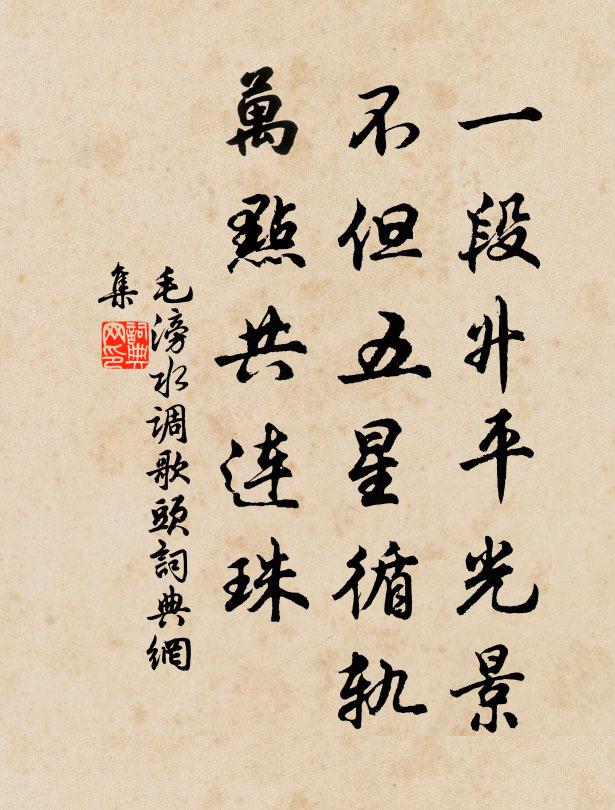 一段升平光景
不但五星循軌
萬點共連珠
毛滂水调歌頭詞典網
集
詞典网印